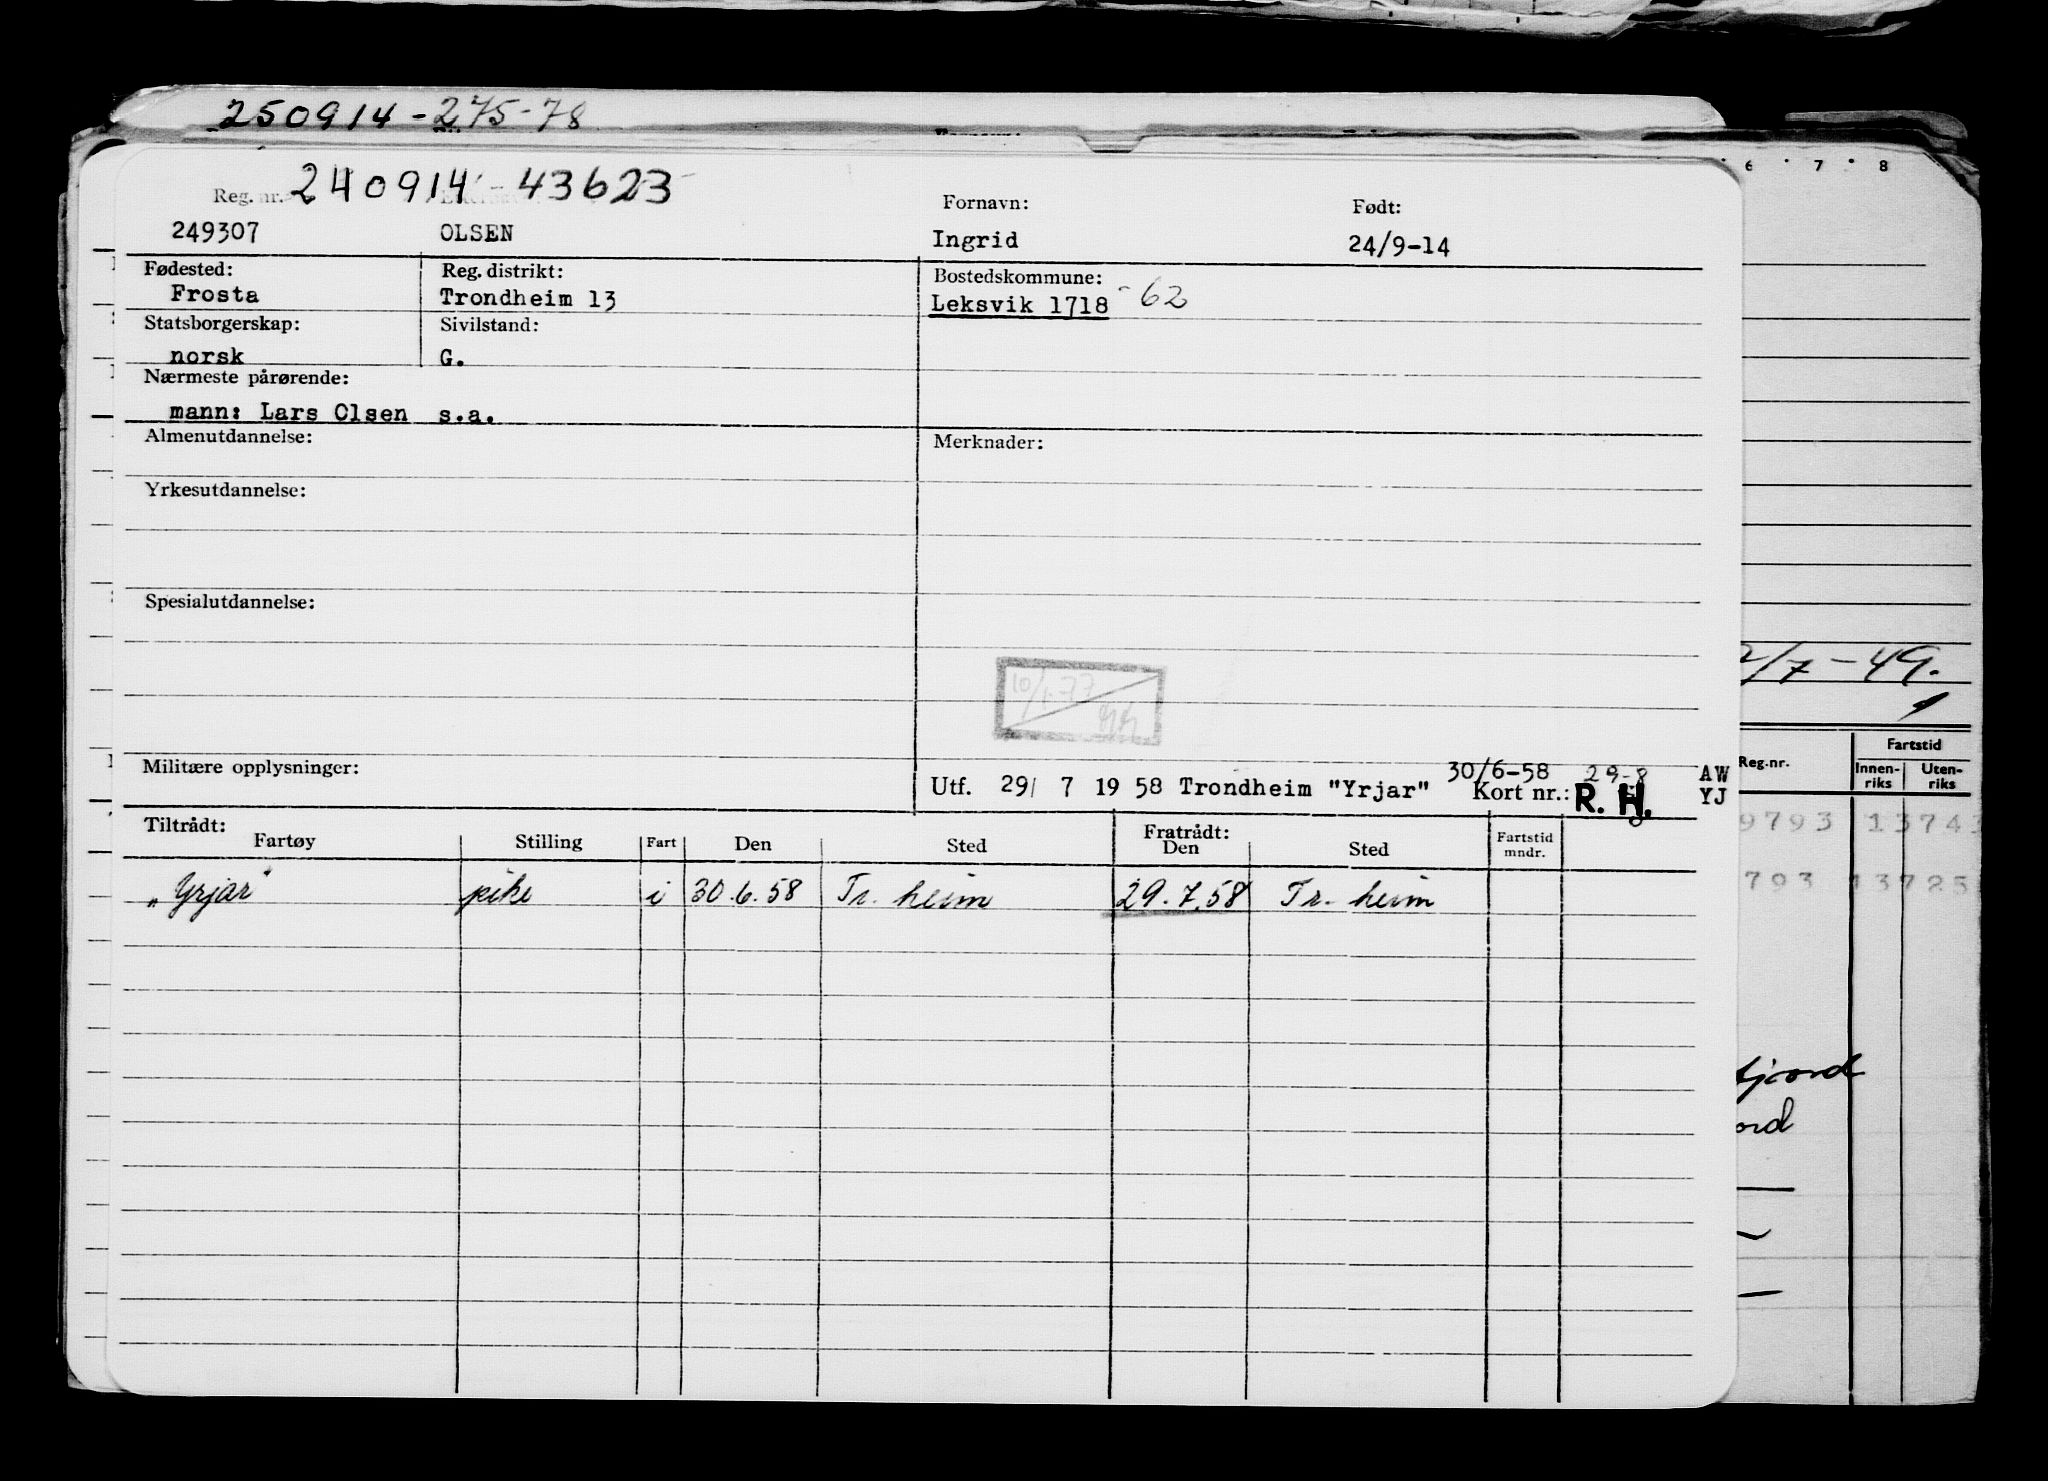 250914-275-78
6 7 8
Reg. nr. 240914-43623 Fornavn: Født:
249307 OLSEN Ingrid 24/9-14
Fødested: Reg. distrikt: Bostedskommune:
Frosta Trondheim 13 Leksvik 1718 -62
Statsborgerskap: Sivilstand:
norsk G.
Nærmeste pårørende:
mann: Lars Olsen s.a.
Almenutdannelse: Merknader:
Yrkesutdannelse:
Spesialutdannelse:
2/7-49.
10/1-77
Militære opplysninger:
Utf. 29/ 7 19 58 Trondheim "Yrjar" 30/6-58 Kort nr.: 29-8 R. H. AW YJ
Reg.nr. Fartstid
Innen-riks Uten-riks
9793 13743
Tiltrådt: Fratrådt:
Fartøy Stilling Fart Den Sted Den Sted Fartstid mndr.
"Yrjar" pike i 30.6.58 Tr. heim 29.7.58 Tr. heim
793 13725
fjord
ord